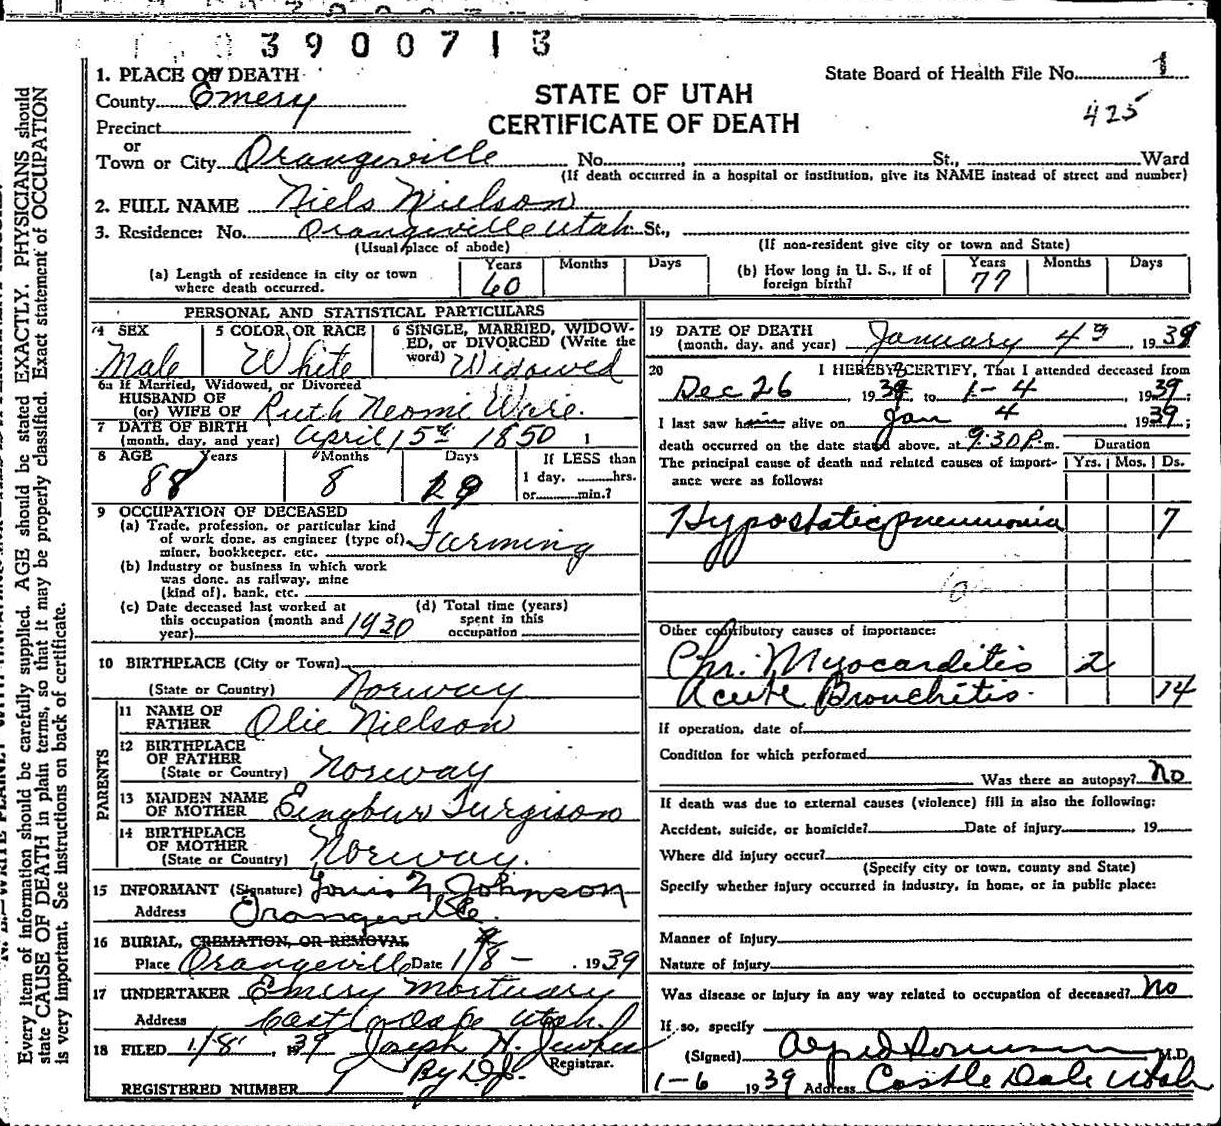 3900713
1. PLACE OF DEATH
State Board of Health File No. 1
County Emery
STATE OF UTAH
425
Precinct
CERTIFICATE OF DEATH
or
Town or City Orangeville No. , St., Ward
(If death occurred in a hospital or institution, give its NAME instead of street and number)
2. FULL NAME Niels Nielson
3. Residence: No. Orangeville Utah St.,
(Usual place of abode) (If non-resident give city or town and State)
(a) Length of residence in city or town where death occurred. Years 60 Months Days
(b) How long in U. S., if of foreign birth? Years 77 Months Days
PERSONAL AND STATISTICAL PARTICULARS
4 SEX Male
5 COLOR OR RACE White
6 SINGLE, MARRIED, WIDOWED, or DIVORCED (Write the word) Widowed
6a If Married, Widowed, or Divorced
HUSBAND OF
(or) WIFE OF Ruth Neomi Ware
7 DATE OF BIRTH
(month, day, and year) April 15th 1850
8 AGE Years 88 Months 8 Days
If LESS than
1 day, hrs.
or min.?
9 OCCUPATION OF DECEASED
(a) Trade, profession, or particular kind
of work done, as engineer (type of)
miner, bookkeeper, etc. Farming
(b) Industry or business in which work
was done, as railway, mine
(kind of), bank, etc.
(c) Date deceased last worked at
this occupation (month and
year) 1930
(d) Total time (years)
spent in this
occupation
10 BIRTHPLACE (City or Town)
(State or Country) Norway
PARENTS
11 NAME OF
FATHER Olie Nielson
12 BIRTHPLACE
OF FATHER
(State or Country) Norway
13 MAIDEN NAME
OF MOTHER Eingbur Turgison
14 BIRTHPLACE
OF MOTHER
(State or Country) Norway.
15 INFORMANT (Signature) Louis N. Johnson
Address Orangeville.
16 BURIAL, CREMATION, OR REMOVAL
Place Orangeville Date 1/8 - , 1939
17 UNDERTAKER Emery Mortuary
Address Castle Dale Utah.
18 FILED 1/8 , 1939 Joseph H. Jewkes
Registrar.
REGISTERED NUMBER 1 By D.J.
19 DATE OF DEATH
(month, day, and year) January 4 , 1939
20 I HEREBY CERTIFY, That I attended deceased from
Dec 26 , 19 to 1-4 , 1939;
I last saw him alive on Jan 4 , 1939;
death occurred on the date stated above, at 9:30 P. m. Duration
The principal cause of death and related causes of importance were as follows: Yrs. Mos. Ds.
Hypostatic pneumonia 7
Other contributory causes of importance:
Chr. Myocarditis 2
Acute Bronchitis. 14
If operation, date of
Condition for which performed
Was there an autopsy? No
If death was due to external causes (violence) fill in also the following:
Accident, suicide, or homicide? Date of injury , 19
Where did injury occur?
(Specify city or town, county and State)
Specify whether injury occurred in industry, in home, or in public place:
Manner of injury
Nature of injury
Was disease or injury in any way related to occupation of deceased? No
If so, specify
(Signed) M.D.
1-6 1939 Address Castle Dale Utah
Every item of information should be carefully supplied. AGE should be stated EXACTLY. PHYSICIANS should
state CAUSE OF DEATH in plain terms, so that it may be properly classified. Exact statement of OCCUPATION
is very important. See instructions on back of certificate.